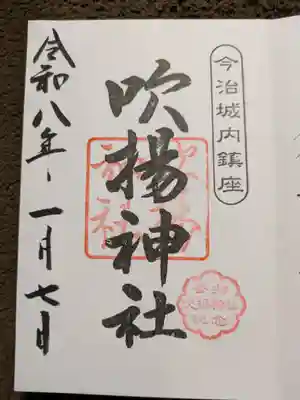 今治城内鎮座
吹揚神社
令和八年一月七日